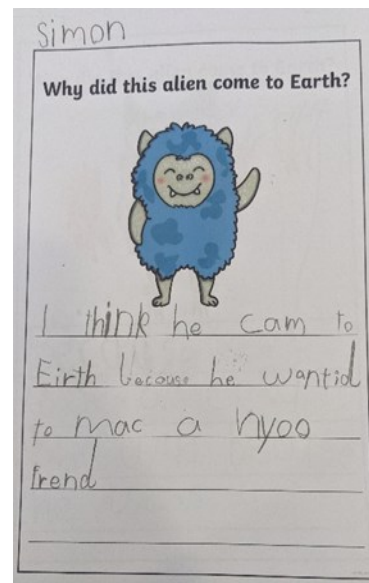 Simon
Why did this alien come to Earth?
I think he cam to
Eirth becouse he wantid
to mac a nyoo
frend